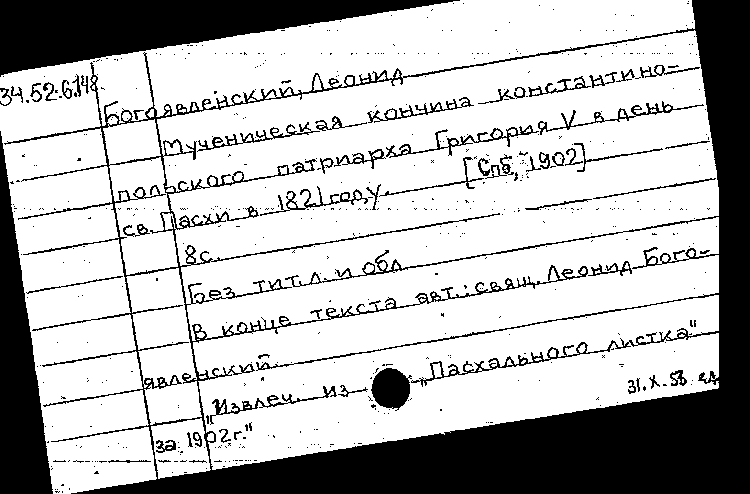 34.52.6.148
Богоявленский, Леонид
Мученическая кончина константино-
польского патриарха Григория V в день
св. Пасхи в 1821 году. [Спб, 1902]
8с.
Без тит. л. и обл
В конце текста авт.: свящ. Леонид Бого-
явленский.
"Извлеч. из „Пасхального листка"
за 1902г."
31.X.53